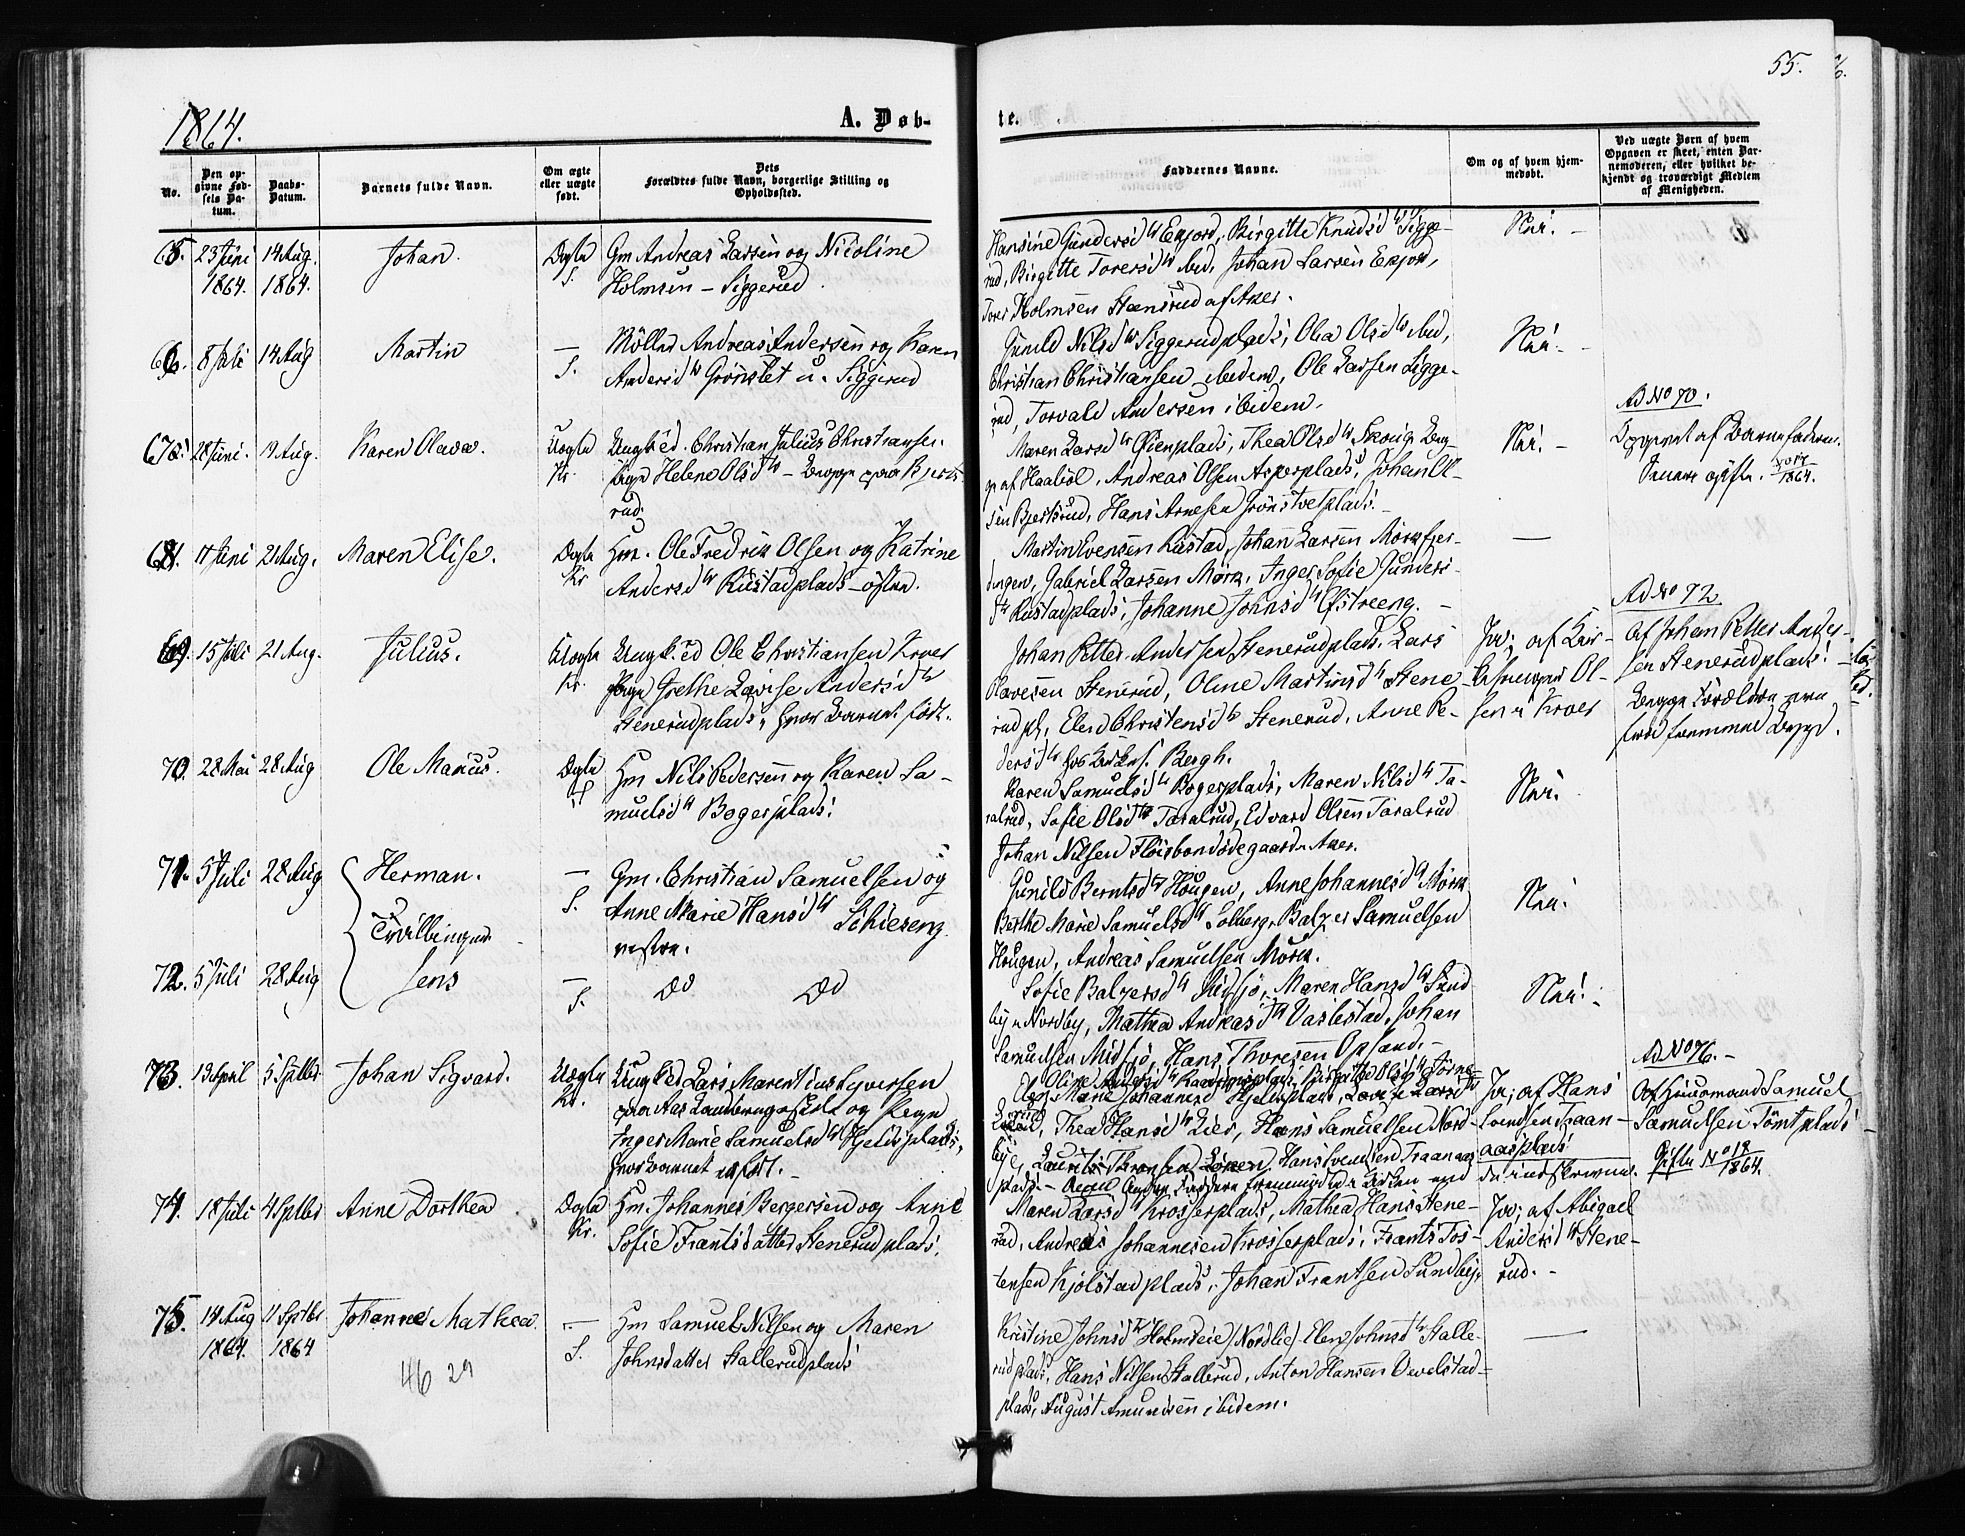 55.
1864.
A. Døb-
te.
No.
Den op-
givne Fød-
sels Da-
tum.
Daabs-
Datum.
Barnets fulde Navn.
Om ægte
eller uægte
født.
Dets
Forældres fulde Navn, borgerlige Stilling og
Opholdssted.
Faddernes Navne.
Om og af hvem hjem-
medøbt.
Ved uægte Børn af hvem
Opgaven er skeet, enten Bar-
nemoderen, eller hvilket be-
kjendt og troværdigt Medlem
af Menigheden.
65. 23 Juni 14 Aug. Johan. Ægte Gm Andreas Larsen og Nicoline
1864. 1864. S. Holmsen – Siggerud.
Hansine Gundersd Ekjord, Birgitte Knudsd Sigge-
rud, Birgitte Torersd ibid, Johan Larsen Ekjord,
Torer Holmsen Stensrud af Aker.
Nei. –
66. 8 Juli 14 Aug Martin — Møller Andreas Andersen og Karen
S. Andersd Grønslet u. Siggerud
Gunild Nilsd Siggerudplads, Olea Olsd ibid,
Christian Christiansen ibidem, Ole Larsen Sigge-
rud, Torvald Andersen ibidem.
Nei. –
Ad No 70.
67. 28 Juni. 19 Aug. Karen Olava. Uægte Ungk ed. Christian Julius Christiansen.
Kr. Pige Helene Olsd – Begge paa Bjerks-
rud.
Maren Larsd Øienplads, Thea Olsd Skoug Beg-
ge af Haabøl, Andreas Olsen Askerplads, Johan Ol-
sen Bjerksrud, Hans Arnesen Grønstvetplads.
Nei. –
Opgivet af Barnefaderen.
Senere gifte.
1864.
68. 17 Juni 21 Aug. Maren Elise. Ægte Hm. Ole Fredrik Olsen og Katrine
Kr Andersd Rustadplads – østre.
Martin Evensen Rustad, Johan Larsen Mørkfjer-
dingen, Gabriel Larsen Mørk, Inger Sofie Gunders-
d Rustadplads, Johanne Johnsd Østreeng. –
—
Ad No 72.
69. 15 Juli 21 Aug. Julius. Uægte Ungk ed Ole Christiansen Kroer
Kr. Pige Grethe Lovise Andersd
Stenerudplads, hvor Barnet født.
Johan Petter Andersen Stenerudplads, Lars
Olavesen Stenerud, Oline Martinsd Stene-
rud pl, Elen Christensd Stenerud, Anne Pe-
dersd hos Bergh.
Ja; af Kir-
kesanger Ol-
sen i Kroer
af Johan Petter Ander-
sen Stenerudplads.
Begge Forældre paa
70. 28 Mai 28 Aug Ole Marius. Ægte Hm Nils Pedersen og Karen Sa-
muelsd Bøgerplads.
Karen Samuelsd Bøgerplads, Maren Nilsd Ta-
ralrud, Sofie Olsd Taralrud, Edvard Olsen Taralrud
Johan Nilsen Fløisbondødegaard Aker.
Nei.
71. 5 Juli 28 Aug Herman. — Gm. Christian Samuelsen og
S. Anne Marie Hansd Schieseng
Tvillinger vestre.
Gunild Berntsd Hougen, Anne Johannesd Mørk
Berthe Marie Samuelsd Solberg, Balzer Samuelsen
Hougen, Andreas Samuelsen Mørk.
Nei.
72. 5 Juli 28 Aug Jens — S. Do Do
Sofie Balzersd Midsjø, Maren Hansd Sund
by i Nordby, Mathea Andreasd Vaslestad, Johan
Samuelsen Midsjø, Hans Thoresen Opsand. –
Nei. –
Ad No 76. –
73. 13 April 5 Sptbr Johan Sigvard. Uægte Ungk ed Lars Marentius Syversen
Kr. paa Aas Landbrugsskole og Pigen
Inger Marie Samuelsd Hjellsplads,
hvor Barnet er født. –
Elen Marie Johannesd Hjellsplads, Lovise Larsd
Thea Hansd Lier, Hans Samuelsen Nord-
bye, Laurits Thoresen Løken, Hans Svendsen Traanaas
plads. –
Ja; af Hans
Svendsen Traan-
aasplads
Af Huusmand Samuel
Samuelsen Tømtplads
Gifte No 18
1864.
74. 18 Juli 4 Sptbr Anne Dorthea Ægte Hm. Johannes Bergersen og Anne
Kr. Sofie Frantsdatter Stenerudplads.
Maren Larsd Krosserplads, Mathea Hans Stene-
rud, Andreas Johannesen Krosserplads, Frants Tos-
tensen Kjølstadplads, Johan Frantsen Sundby,
Ja; af Abigael
Andersd Stene-
rud. –
75. 14 Aug 11 Sptbr Johanne Mathea. — Hm Samuel Nilsen og Maren
1864. 1864 S. Johnsdatter Stallerudplads
Kristine Johnsd Holmseie (Nordlie) Elen Johnsd Stalle-
rudplads, Hans Nilsen Stallerud, Anton Hansen Ovelstad-
plads, August Amundsen ibidem.
—
46 29